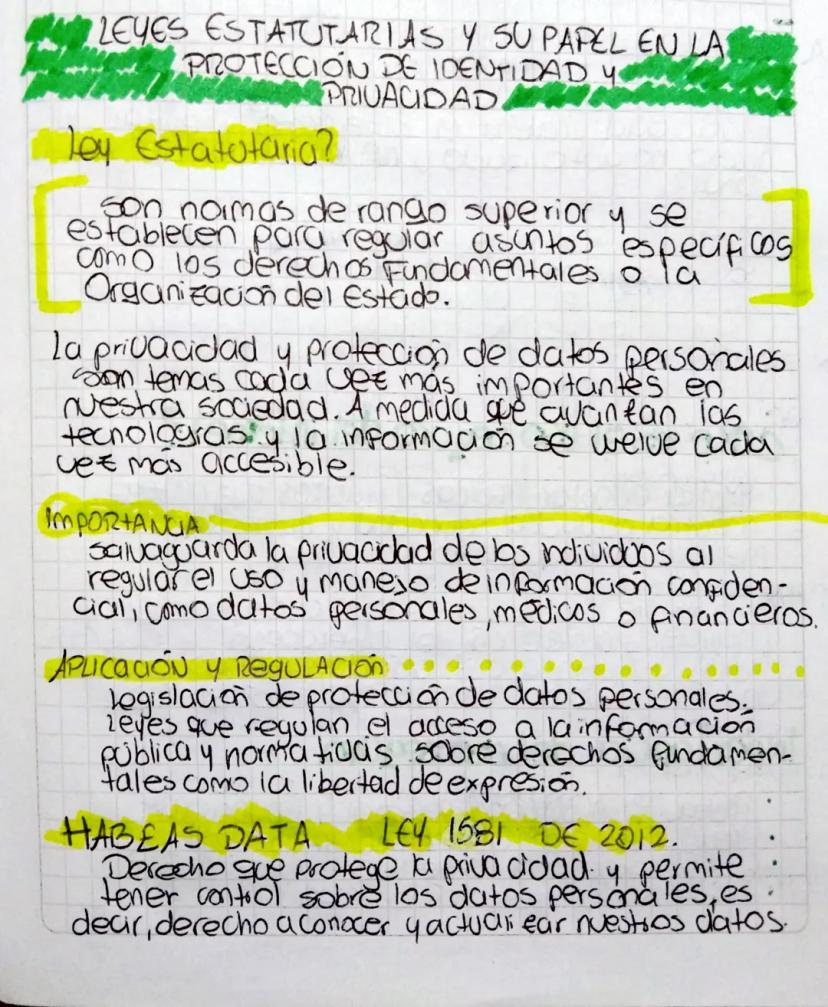 LEYES ESTATUTARIAS Y SU PAPEL EN LA
PROTECCIÓN DE IDENTIDAD Y
PRIVACIDAD
Ley Estatutaria?
son normas de rango superior y se
establecen para regular asuntos específicos
como los derechos Fundamentales o la
Organización del Estado.
La privacidad y protección de datos personales
son temas cada vez más importantes en
nuestra sociedad. A medida que avanzan las
tecnologías y la información se vuelve cada
vez más accesible.
IMPORTANCIA
salvaguarda la privacidad de los individuos al
regular el uso y manejo de información confiden-
cial, como datos personales, médicos o financieros.
APLICACIÓN Y REGULACIÓN
Legislación de protección de datos personales,
leyes que regulan el acceso a la información
pública y normativas sobre derechos fundamen-
tales como la libertad de expresión.
HABEAS DATA LEY 1581 DE 2012.
Derecho que protege la privacidad y permite
tener control sobre los datos personales, es
decir, derecho a conocer y actualizar nuestros datos.